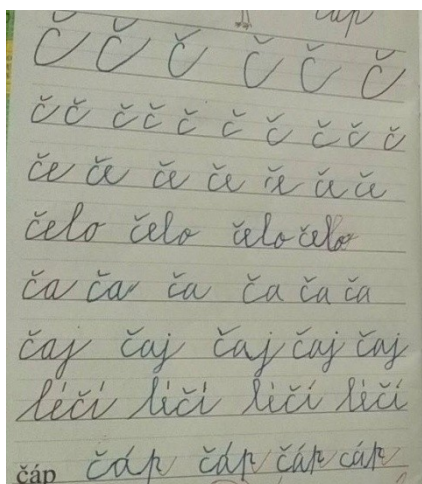 čáp
Č Č Č Č Č Č
č č č č č č č č č č
če če če če če če če
čelo čelo čelo čelo
ča ča ča ča ča ča
čaj čaj čaj čaj čaj
léčí léčí léčí léčí
čáp čáp čáp čáp čáp